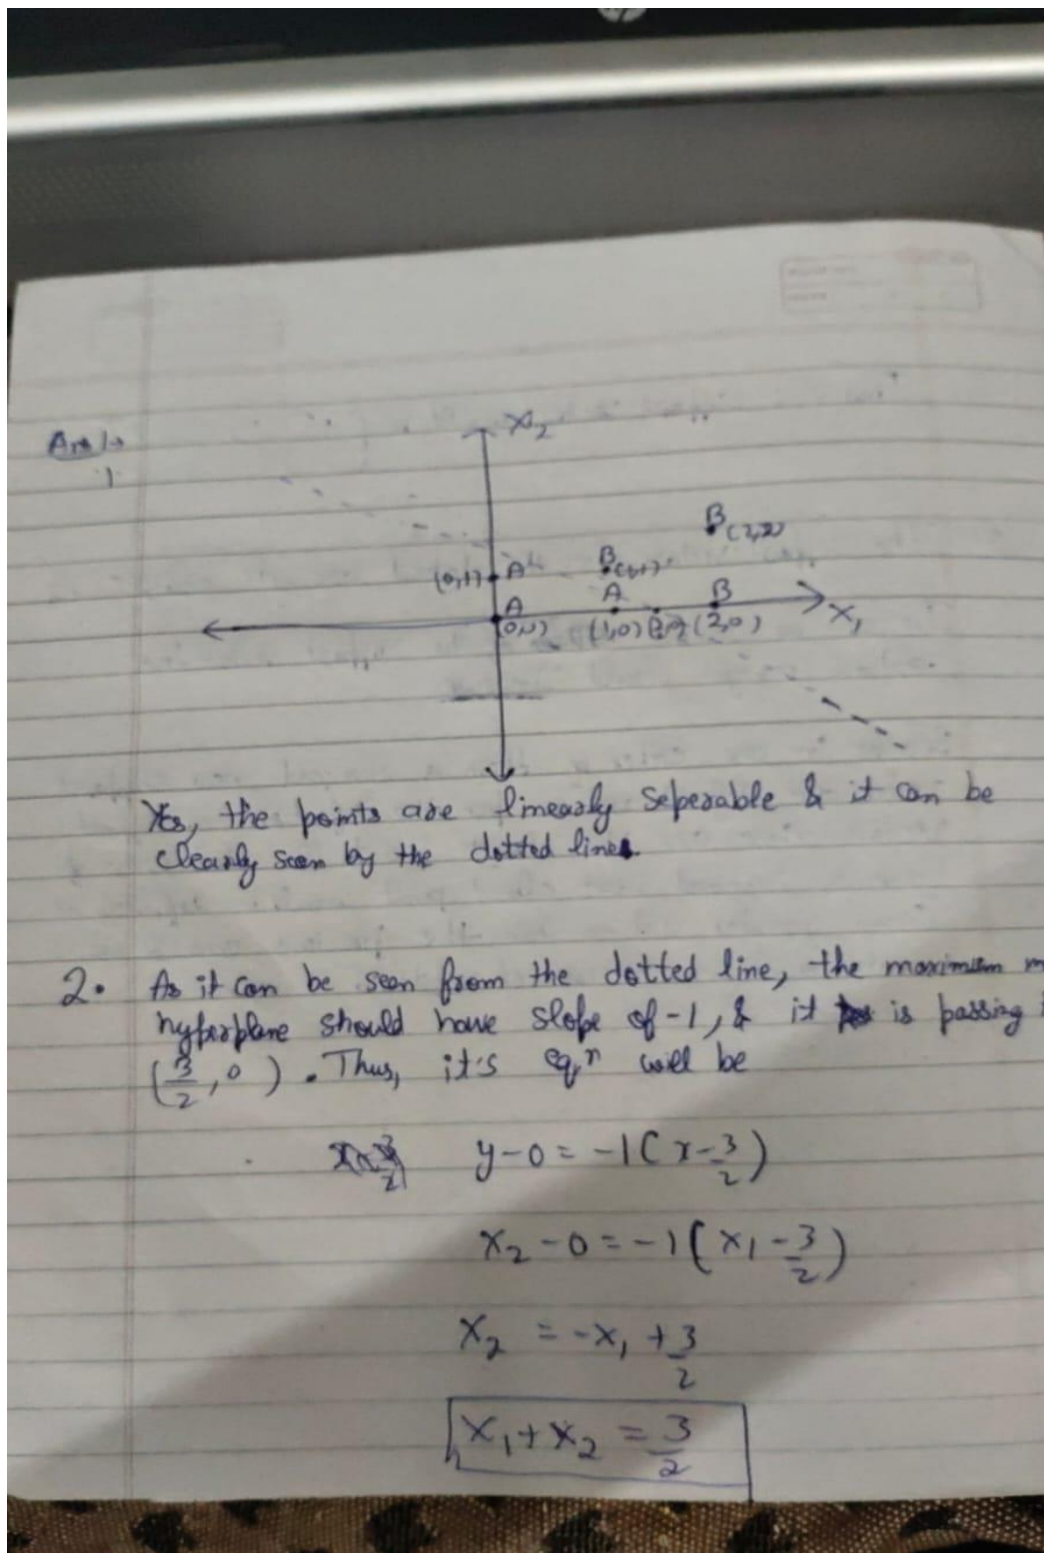 Ans 1→
1.
X2
B
(2,2)
(0,1) A B (1,1)
A A B
(0,0) (1,0) (2,0) X1
Yes, the points are linearly seperable & it can be
clearly seen by the dotted line.
2. As it can be seen from the dotted line, the maximum m
hyperplane should have slope of -1, & it is passing
(3/2, 0). Thus, it's eqn will be
y-0 = -1(x-3/2)
X2 -0 = -1(X1 - 3/2)
X2 = -X1 + 3/2
X1 + X2 = 3/2